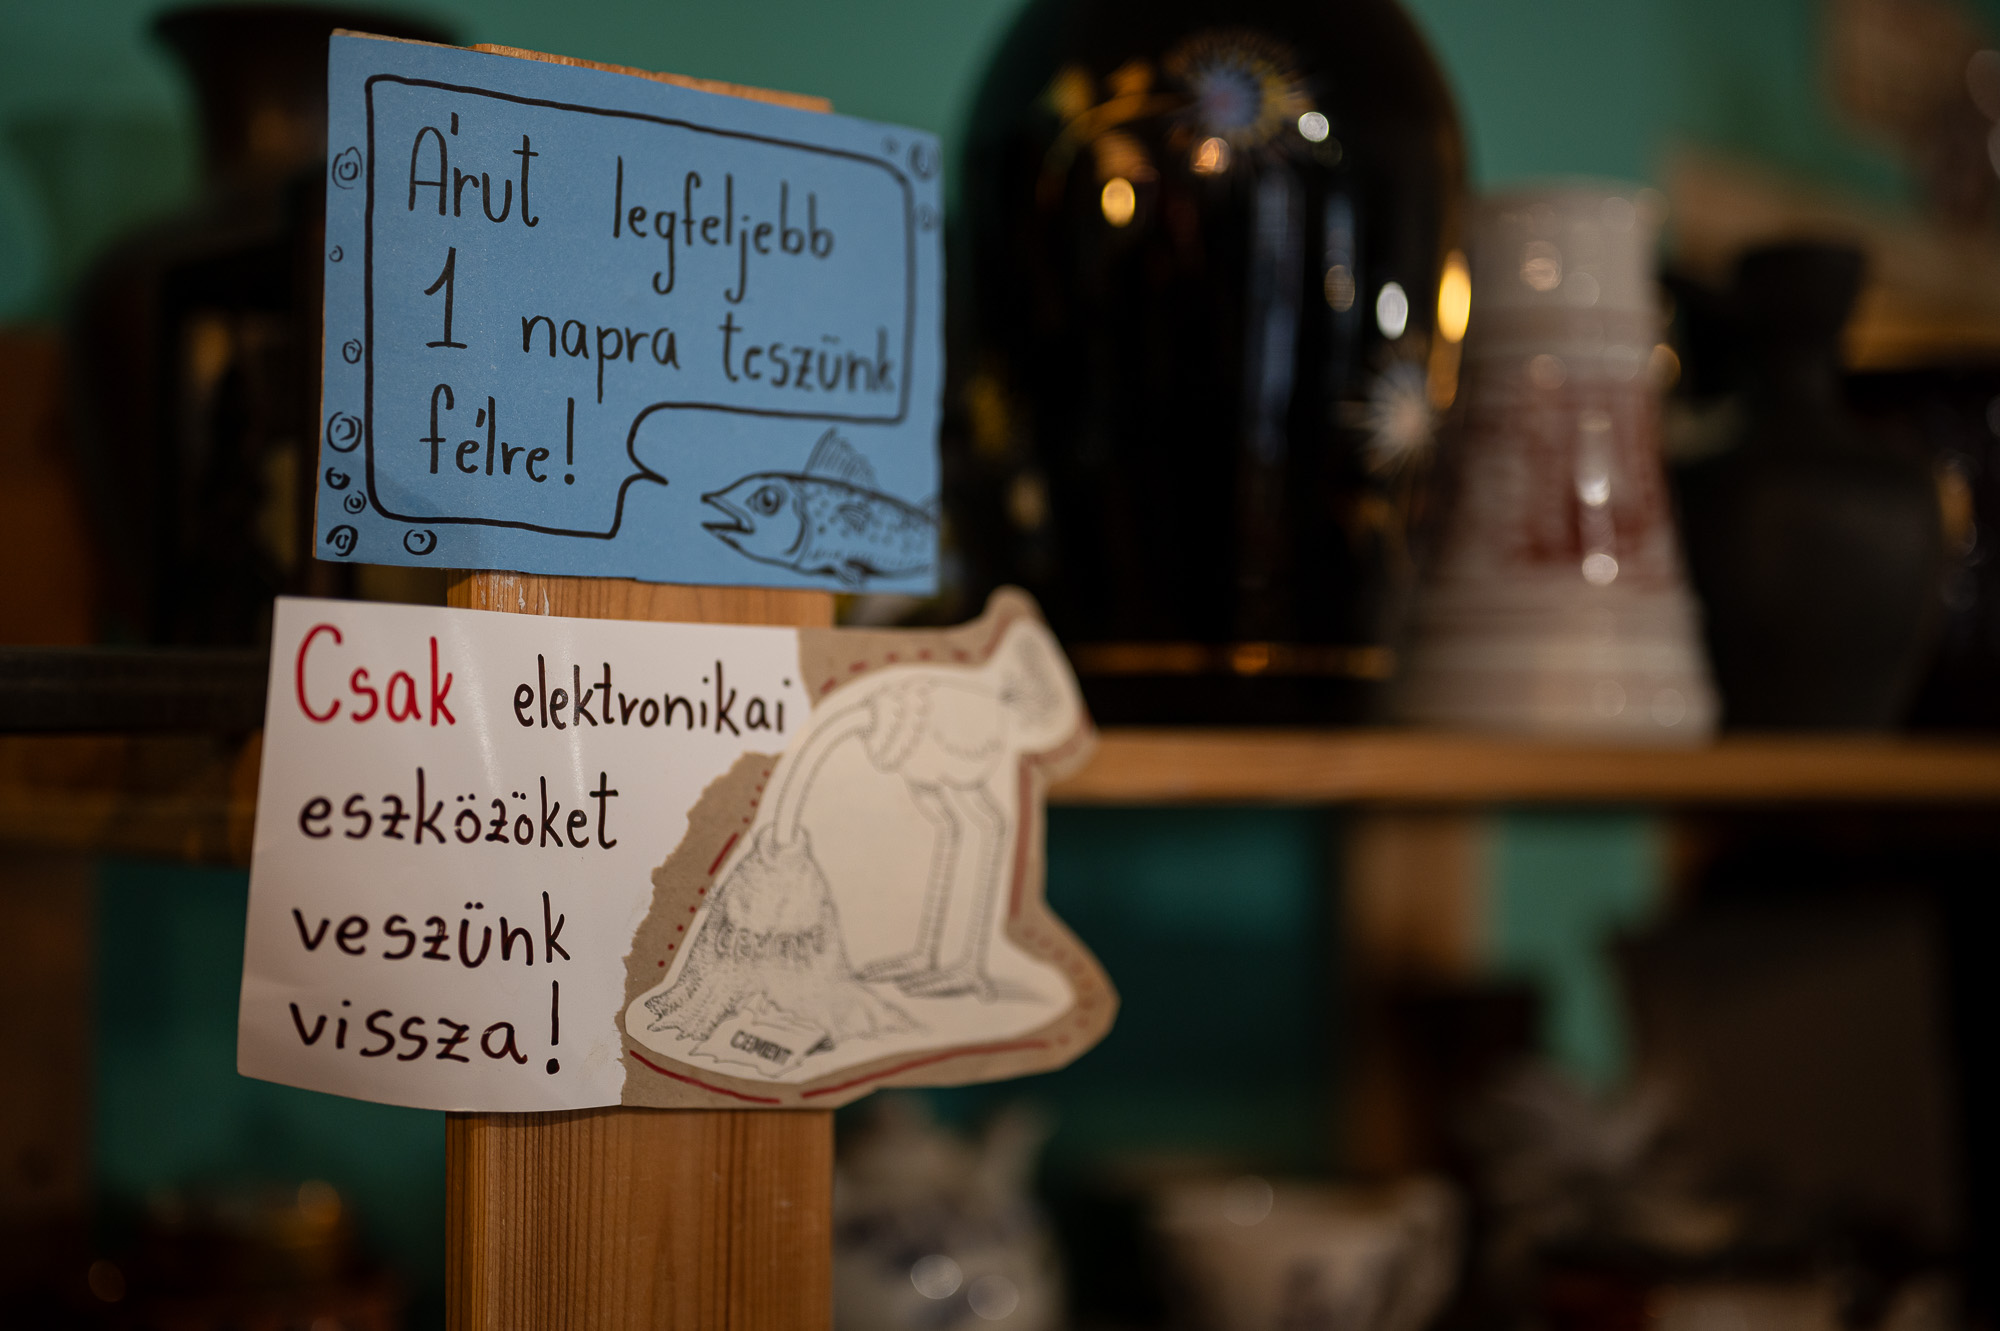 Árut legfeljebb
1 napra teszünk
félre!
Csak elektronikai
eszközöket
veszünk
vissza!
CEMENT